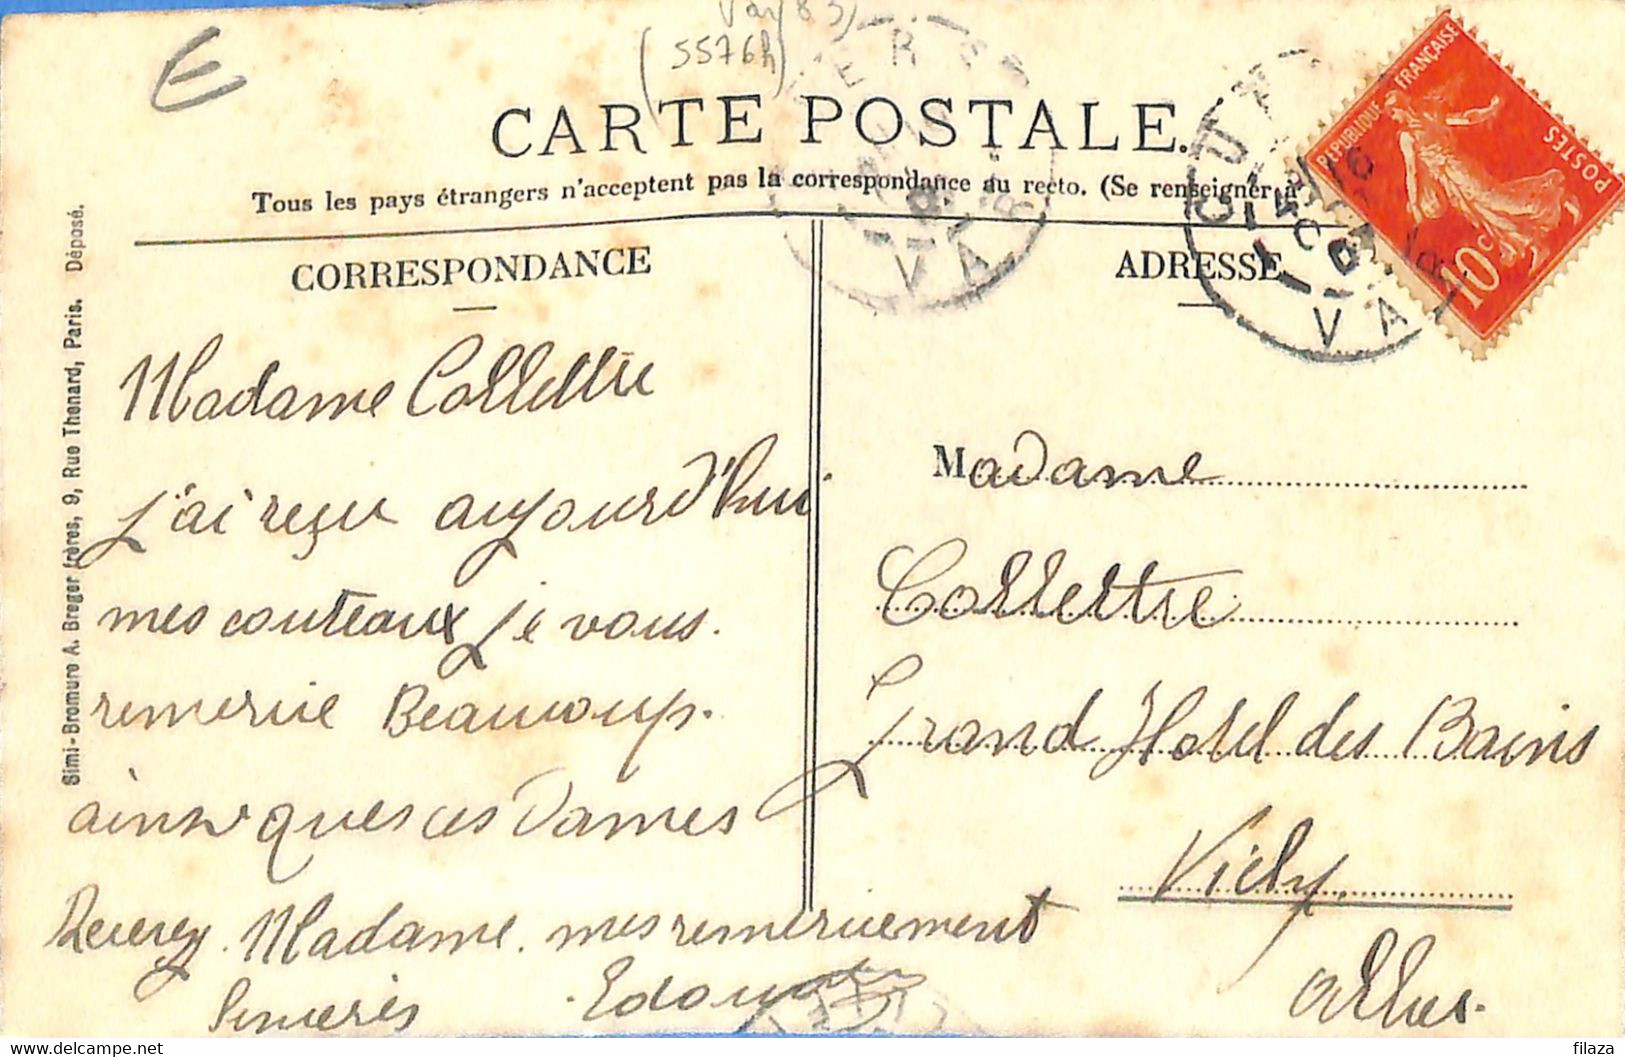 Var (83)
(5576h)
E
CARTE POSTALE.
Tous les pays étrangers n'acceptent pas la correspondance au recto. (Se renseigner à
CORRESPONDANCE
ADRESSE
RÉPUBLIQUE FRANÇAISE
POSTES
10c
VAR
VAR
Simi-Bromure A. Breger frères, 9, Rue Thenard, Paris. Déposé.
Madame Collettre
j'ai reçu aujourd'hui
mes couteaux je vous
remercie Beaucoup.
ainsi que ces Dames
Recevez Madame mes remerciement
Sincerès
Edouard
Madame
Collettre
Grand Hotel des Bains
Vichy
Allier.
delcampe.net
filaza